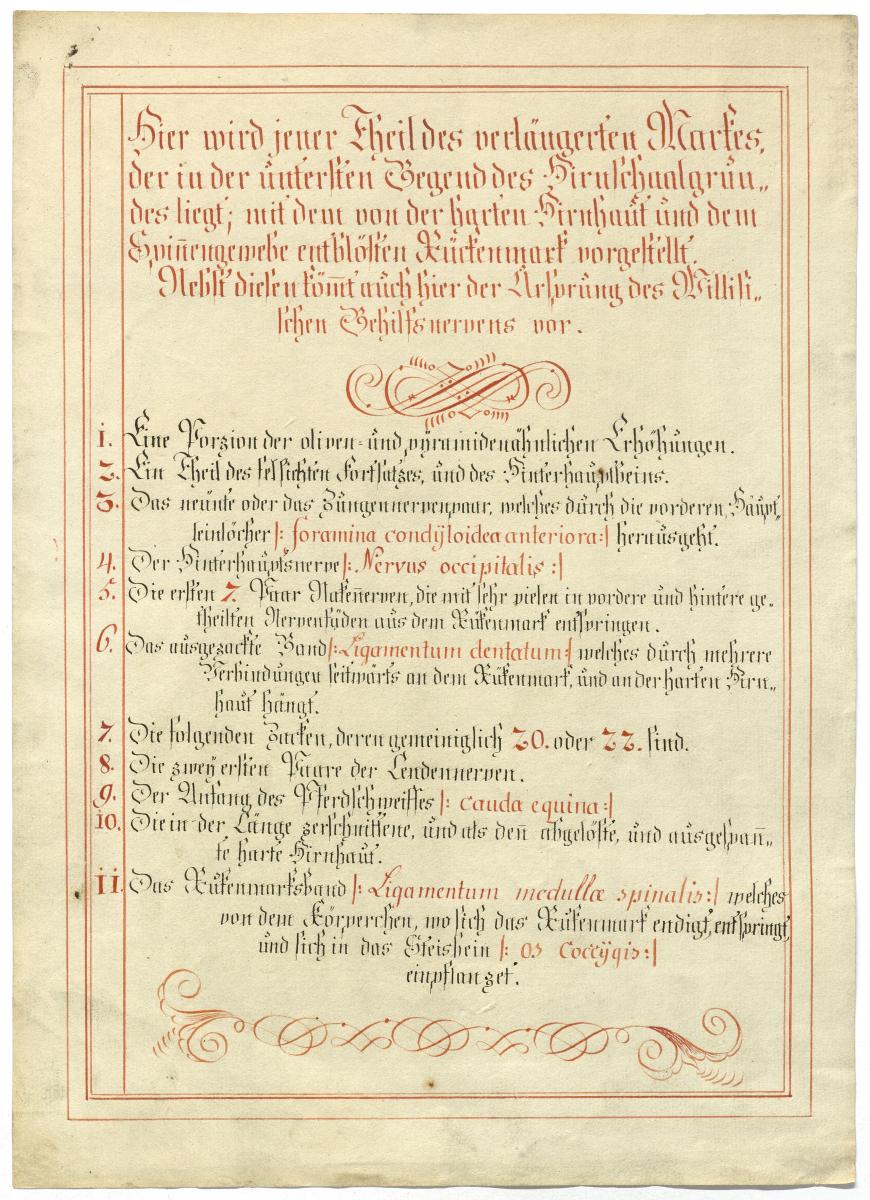 Hier wird jener Theil des verlängerten Markes,
der in der untersten Gegend des Hirnschaalgrün„
des liegt; mit dem von der harten Hirnhaut und dem
Spiñengewebe entblösten Rückenmark vorgestellt.
Nebst diesenköm̄t auch hier der Ursprung des Willisi„
schen Behilfsnervens vor.
1. Eine Porzion der oliven= und pyramidenähnlichen Erhöhungen.
2. Ein Theil des felsichten Fortsatzes, und des Hinterhauptbeins.
3. Das neunte oder das Zungennervenpaar, welches durch die vorderen Haupt„
seinlöcher |: foramina condÿloidea anteriora :| herausgeht.
4. Der Hinterhauptsnerve |: Nervus occipitalis :|
5. Die ersten 7. Paar Nakeñerven, die mit sehr vielen in vordere und hintere ge„
theilten Nervenfäden aus dem Rükenmark entspringen.
6. Das ausgezackte Band |: Ligamentum dentatum :| welches durch mehrere
Verbindungen seitwärts an dem Rükenmark, und an der harten Hirn„
haut hängt.
7. Die folgenden Zacken, deren gemeiniglich 20. oder 22. sind.
8. Die zweÿ ersten Paare der Lendennerven.
9. Der Anfang des Pferdschweiffes |: cauda equina :|
10. Die in der Länge zerschnittene, und als deñ abgelöste, und ausgespañ„
te harte Hirnhaut.
11. Das Rükenmarksband |: Ligamentum medullæ spinalis :| welches
von dem Körperchen, wo sich das Rükenmark endigt, entspringt,
und sich in das Steisbein |: os Coccÿgis :|
einpflanzet.